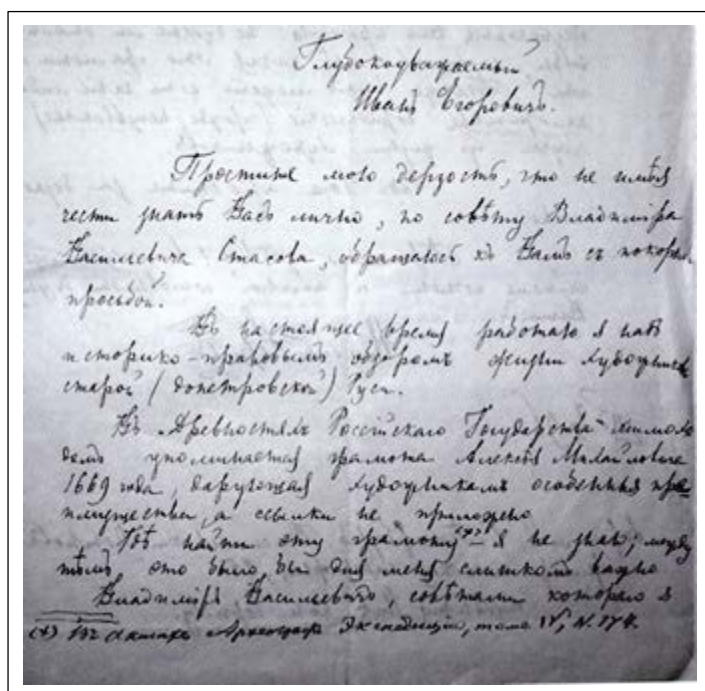 Глубокоуважаемый
Иванъ Егоровичъ.
Простите мою дерзость, что не имѣя
чести знать Васъ лично, по совѣту Владиміра
Васильевича Стасова, обращаюсь къ Вамъ съ покорн
просьбой.
Въ настоящее время работаю я надъ
историко-правовымъ обзоромъ жизни художник
старой (допетровской) Руси.
Въ Древностяхъ Россійскаго Государства мимохо
домъ упоминается грамота Алексѣя Михайловича
1669 года, дарующая художникамъ особенныя пре
имущества, а ссылки не приложено
Гдѣ найти эту грамоту (*) я не знаю; между
тѣмъ это было бы для меня слишкомъ важно
Владиміръ Васильевичъ, совѣтами котораго я
(*) Въ Актахъ Археограф Экспедиціи, томъ IV, N. 174.